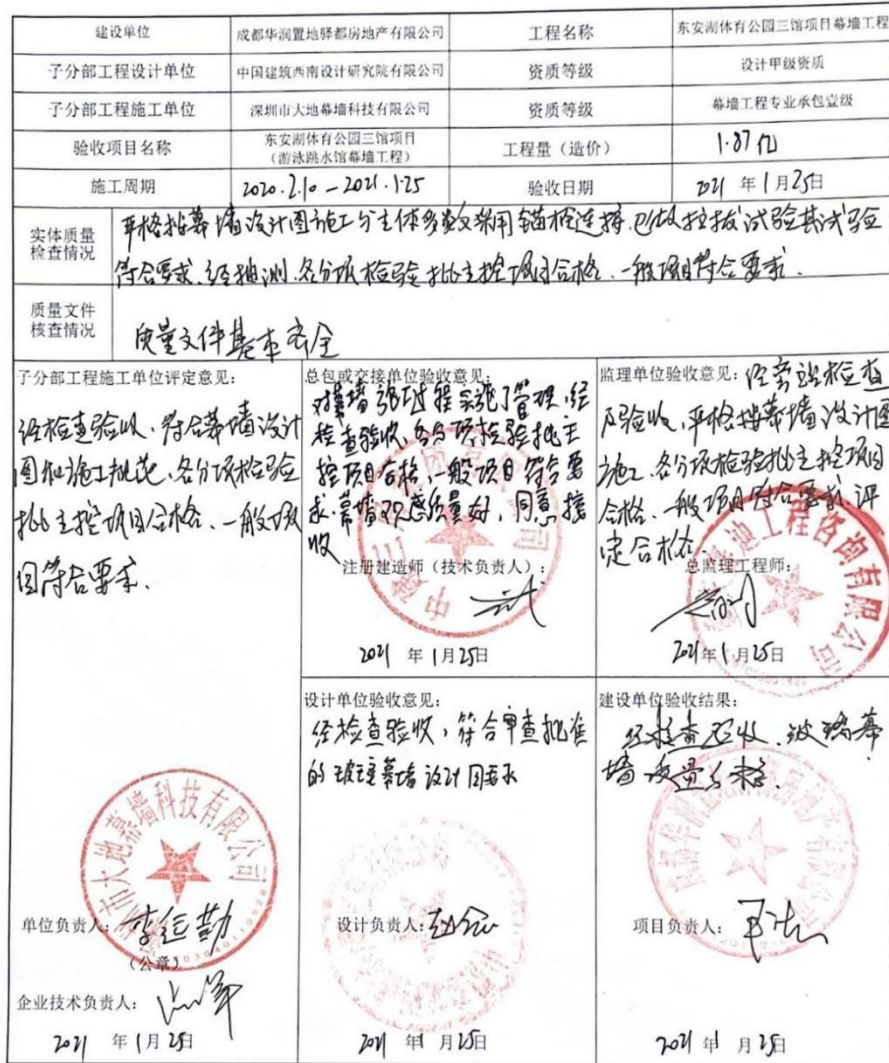 建设单位 成都华润置地驿都房地产有限公司 工程名称 东安湖体育公园三馆项目幕墙工程
子分部工程设计单位 中国建筑西南设计研究院有限公司 资质等级 设计甲级资质
子分部工程施工单位 深圳市大地幕墙科技有限公司 资质等级 幕墙工程专业承包壹级
验收项目名称 东安湖体育公园三馆项目 工程量（造价） 1.87亿
（游泳跳水馆幕墙工程）
施工周期 2020.2.10-2021.1.25 验收日期 2021年1月25日
实体质量
检查情况
严格按幕墙设计图施工与主体多数采用锚栓连接.已做拉拔试验其试验
符合要求.经抽测.各分项检验批主控项目合格.一般项目符合要求.
质量文件
核查情况
质量文件基本齐全
子分部工程施工单位评定意见：
经检查验收、符合幕墙设计
图和施工规范、各分项检验
批主控项目合格、一般项
目符合要求.
单位负责人：李运勤
（公章）
企业技术负责人：
2021年1月25日
深圳市大地幕墙科技有限公司
总包或交接单位验收意见：
对幕墙施工过程实施了管理.经
检查验收、各分项检验批主
控项目合格、一般项目符合要
求.幕墙观感质量好，同意接
收
注册建造师（技术负责人）：
2021年1月25日
监理单位验收意见：经旁站检查
及验收、严格按幕墙设计图
施工.各分项检验批主控项目
合格、一般项目符合要求.评
定合格.
总监理工程师：
2021年1月25日
工程咨询有限公司
设计单位验收意见：
经检查验收，符合审查批准
的玻璃幕墙设计图要求
设计负责人：
2021年1月25日
建设单位验收结果：
经检查验收.玻璃幕
墙质量合格.
项目负责人：
2021年1月25日